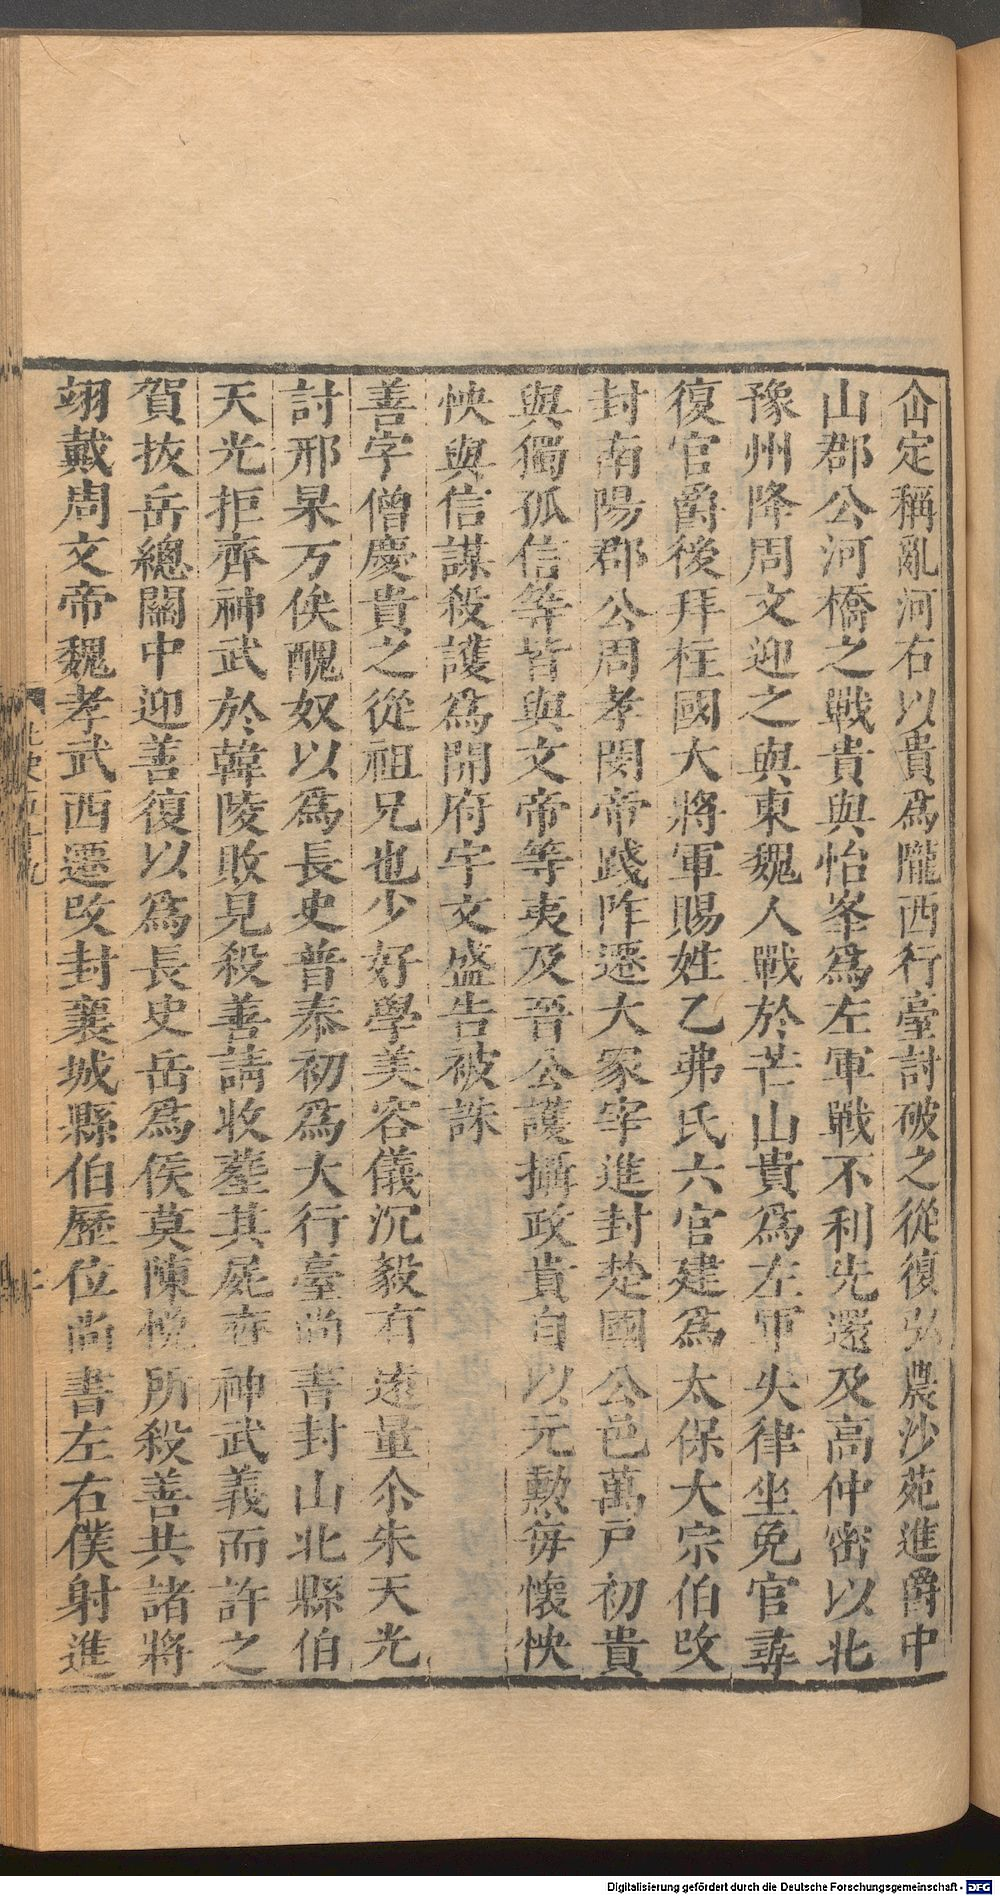 仚定稱亂河右以貴爲隴西行臺討破之從復弘農沙苑進爵中
山郡公河橋之戰貴與怡峯爲左軍戰不利先還及高仲密以北
豫州降周文迎之與東魏人戰於芒山貴爲左軍失律坐免官尋
復官爵後拜柱國大將軍賜姓乙弗氏六官建爲太保大宗伯改
封南陽郡公周孝閔帝踐阼遷大冢宰進封楚國公邑萬戶初貴
與獨孤信等皆與文帝等夷及晉公護攝政貴自以元勲每懷怏
怏與信謀殺護爲開府宇文盛告被誅
善字僧慶貴之從祖兄也少好學美容儀沉毅有遠量尒朱天光
討邢杲万俟醜奴以爲長史普泰初爲大行臺尚書封山北縣伯
天光拒齊神武於韓陵敗見殺善請收葬其屍齊神武義而許之
賀拔岳總關中迎善復以爲長史岳爲侯莫陳悅所殺善共諸將
翊戴周文帝魏孝武西遷改封襄城縣伯歷位尚書左右僕射進
Digitalisierung gefördert durch die Deutsche Forschungsgemeinschaft - DFG